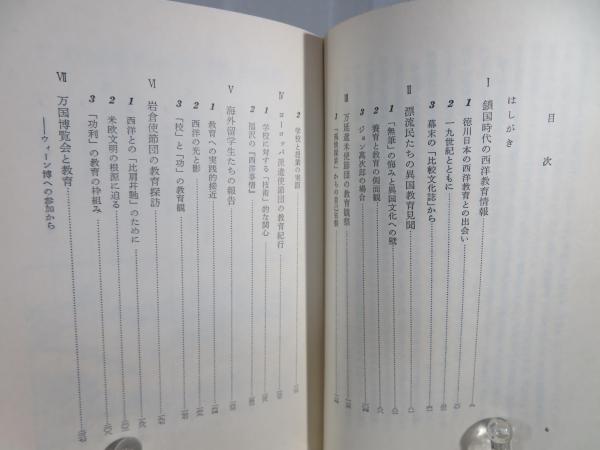 目次
はしがき
Ⅰ 鎖国時代の西洋教育情報
1 徳川日本の西洋教育との出会い
2 一九世紀とともに
3 幕末の「比較文化誌」から
Ⅱ 漂流民たちの異国教育見聞
1 「無筆」の悩みと異国文化への壁
2 養育と教育の側面観
3 ジョン万次郎の場合
Ⅲ 万延遣米使節団の教育観察
2 学校と授業の実際
Ⅳ ヨーロッパ派遣使節団の教育紀行
1 学校に対する「技術」的な関心
2 福沢の『西洋事情』
Ⅴ 海外留学生たちの報告
1 教育への実践的接近
2 西洋の光と影
3 「校」と「功」の教育観
Ⅵ 岩倉使節団の教育探訪
1 西洋との「比肩幷馳」のために
2 米欧文明の根原に迫る
3 「功利」の教育の枠組み
Ⅶ 万国博覧会と教育
――ウィーン博への参加から